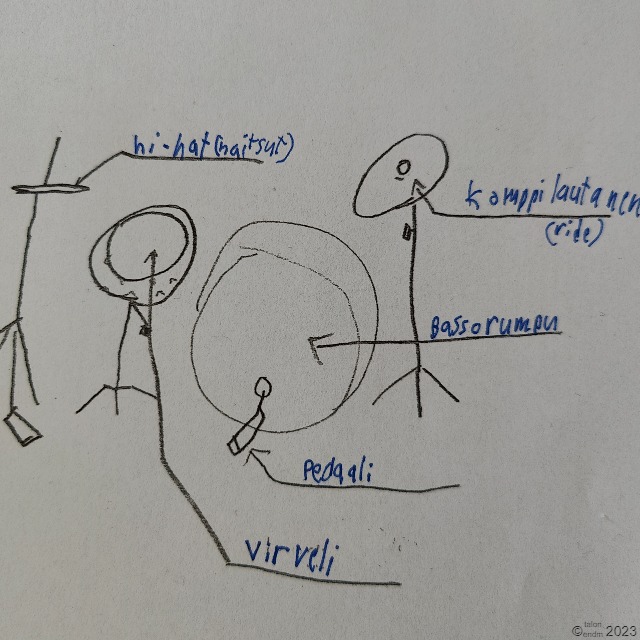 hi-hat (haitsut)
komppilautanen
(ride)
Bassorumpu
Pedaali
virveli
© talon
2023